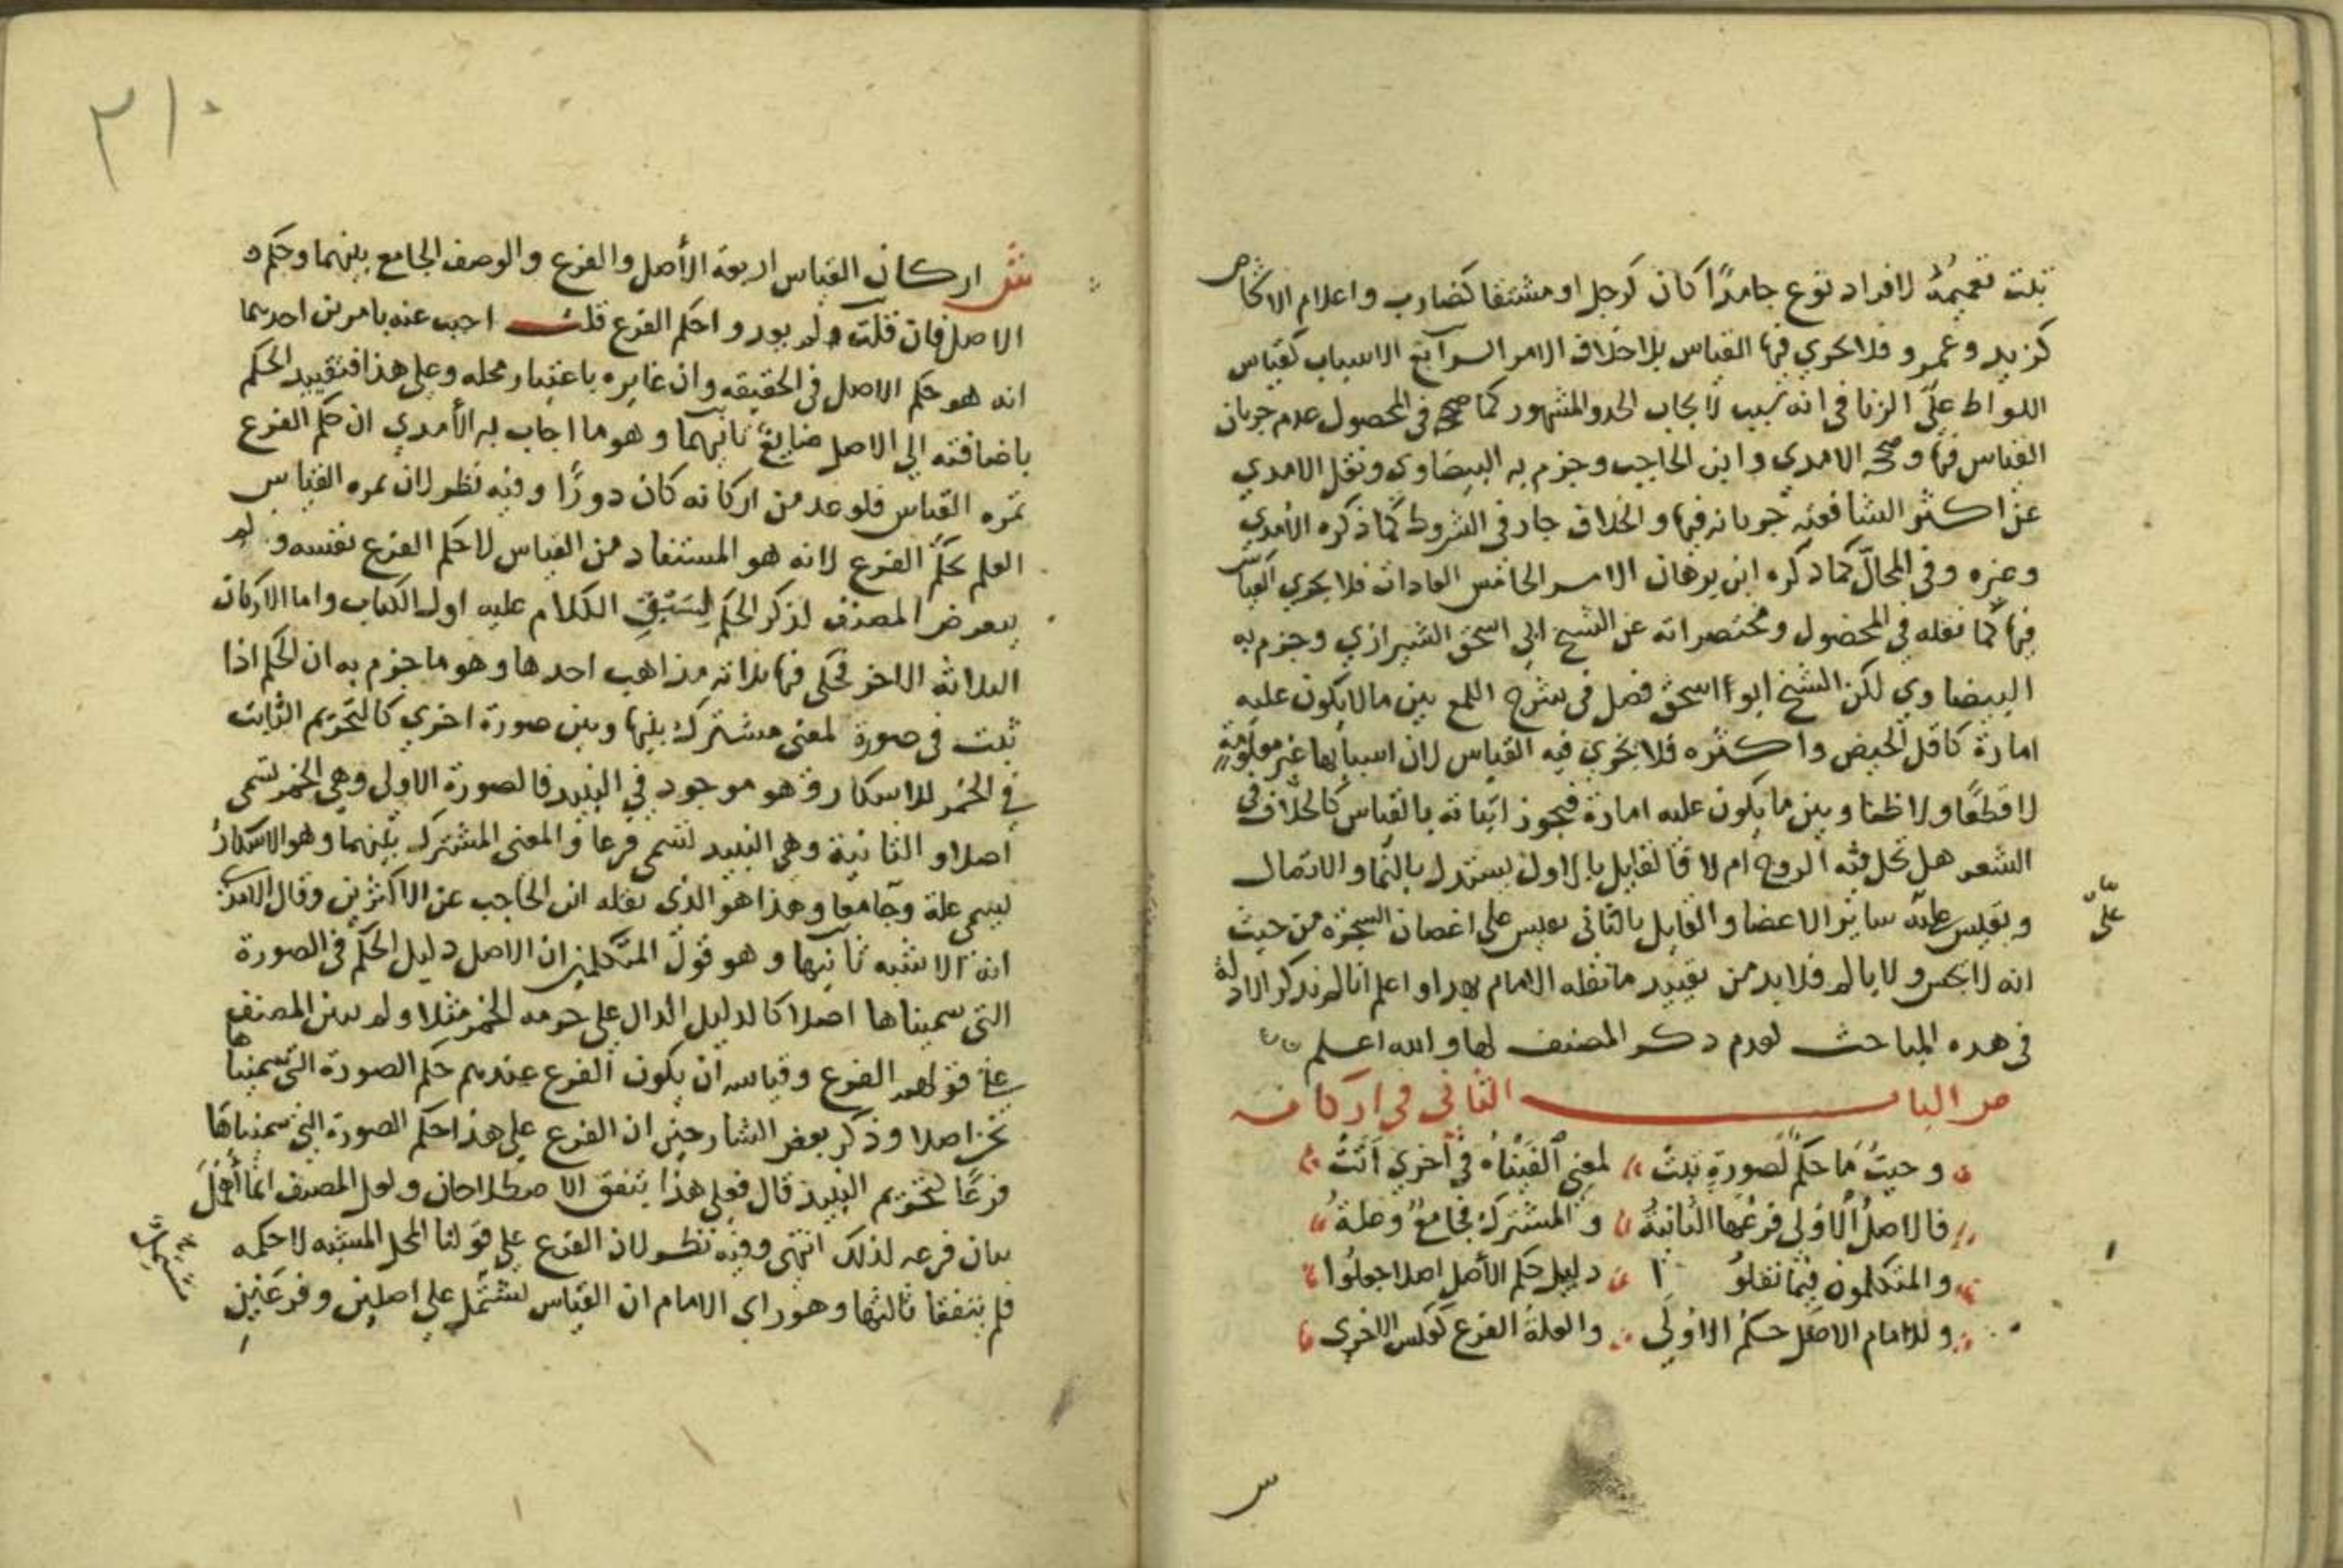 ثبت تعميمه لافراد نوع جامدًا كان كرجل او مشتقا كضارب واعلام الاشخاص
كزيد وعمرو فلا يجري فيها القياس بلا خلاف الامر الرابع الاسباب كقياس
اللواط على الزنا في انه سبب لايجاب الحد والمشهور كما صححه في المحصول عدم جريان
القياس فيها وصححه الامدي وابن الحاجب وجزم به البيضاوي ونقل الامدي
عن اكثر الشافعيه جريانه فيها والخلاف جار في الشروط كما ذكره الامدي
وغيره وفي المحالّ كما ذكره ابن برهان الامر الخامس العادات فلا يجري القياس
فيها كما نقله في المحصول ومختصراته عن الشيخ ابي اسحق الشيرازي وجزم به
البيضاوي لكن الشيخ ابو اسحق فصل في شرح اللمع بين ما لا يكون عليه
امارة كاقل الحيض واكثره فلا يجري فيه القياس لان اسبابها غير معلومة
لا قطعًا ولا ظنا وبين ما يكون عليه امارة فيجوز اثباته بالقياس كالخلاف في
الشعر هل تحل فيه الروح ام لا فالقايل بالاول يستدل بالنما والاتصال
ويقيس عليه ساير الاعضا والقايل بالثاني يقيس على اغصان الشجره من حيث
انه لا يحس ولا يالم فلا بد من تقييد ما نقله الامام بهذا واعلم انا لم نذكر الادلة
في هذه المباحث لعدم ذكر المصنف لها والله اعلم
ص الباب الثاني في اركانه
وحيثُ ما حكم لصورةٍ ثبتْ لمعنى الفيناه في اخري اتتْ
فالاصل الاولى فرعها الثانية والمشترك فجامعٌ وعلة
والمتكلمون فيما نقلوا دليل حكم الأصل اصلا جعلوا
وللامام الاصل حكم الاولى والعلة الفرع كعكس الاخرى
علىّ
س
٣١٠
ش اركان القياس اربعة الأصل والفرع والوصف الجامع بينهما وحكم
الاصل فان قلت ولم يوردوا حكم الفرع قلت اجيب عنه بامرين احدهما
انه هو حكم الاصل في الحقيقه وان غايره باعتبار محله وعلى هذا فتقييد الحكم
باضافته الي الاصل ضايع ثانيهما وهو ما اجاب به الأمدي ان حكم الفرع
ثمره القياس فلو عد من اركانه كان دورًا وفيه نظر لان ثمره القياس
العلم بحكم الفرع لانه هو المستفاد من القياس لا حكم الفرع نفسه ولم
يتعرض المصنف لذكر الحكم لسَبْقِ الكلام عليه اول الكتاب واما الاركان
الثلاثه الاخر فحكى فيها ثلاثه مذاهب احدها وهو ما جزم به ان الحكم اذا
ثبت في صورة لمعنى مشترك بينها وبين صورة اخري كالتحريم الثابت
في الخمر للاسكار وهو موجود في النبيذ فالصورة الاولى وهي الخمر تسمى
اصلا والثانية وهي النبيذ تسمى فرعا والمعنى المشترك بينهما وهو الاسكارُ
يسمى علة وجامعا وهذا هو الذي نقله ابن الحاجب عن الاكثرين وقال الامدي
انه الاشبه ثانيها وهو قول المتكلمين ان الاصل دليل الحكم في الصورة
التي سميناها اصلا كالدليل الدال على حرمه الخمر مثلا ولم يبين المصنف
على قولهم الفرع وقياسه ان يكون الفرع عندهم حكم الصورة التي سميناها
نحن اصلا وذكر بعض الشارحين ان الفرع على هذا حكم الصورة التي سميناها
فرعًا كتحريم النبيذ قال فعلى هذا يتفق الاصطلاحان ولعل المصنف انما أهمل
بيان فرعه لذلك انتهى وفيه نظر لان الفرع على قولنا المحل المشبه لا حكمه
فلم يتفقا ثالثها وهو راي الامام ان القياس يشتمل على اصلين وفرعين